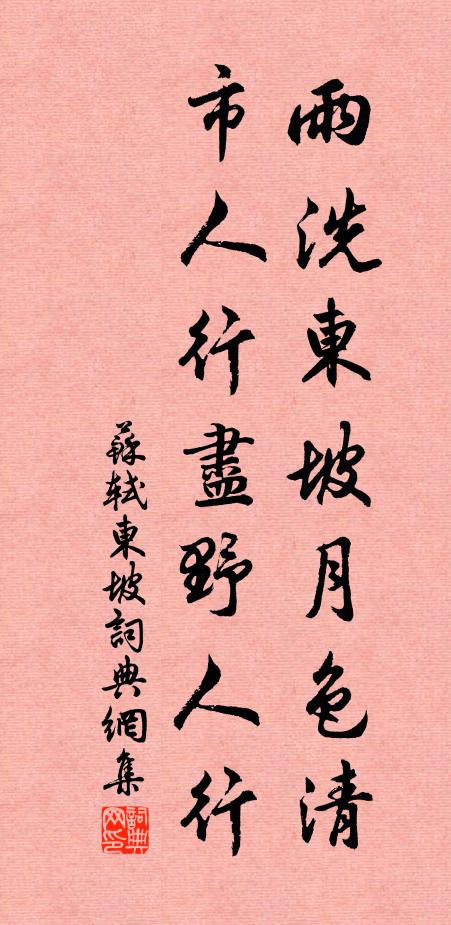 雨洗東坡月色清
市人行盡野人行
蘇軾東坡詞典網集
詞典網印